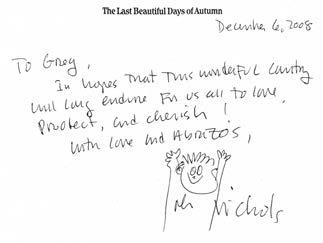 The Last Beautiful Days of Autumn
December 6, 2008
To Greg,
In hopes that this wonderful country
will long endure for us all to love,
protect, and cherish!
with love and Abrazos,
John Nichols